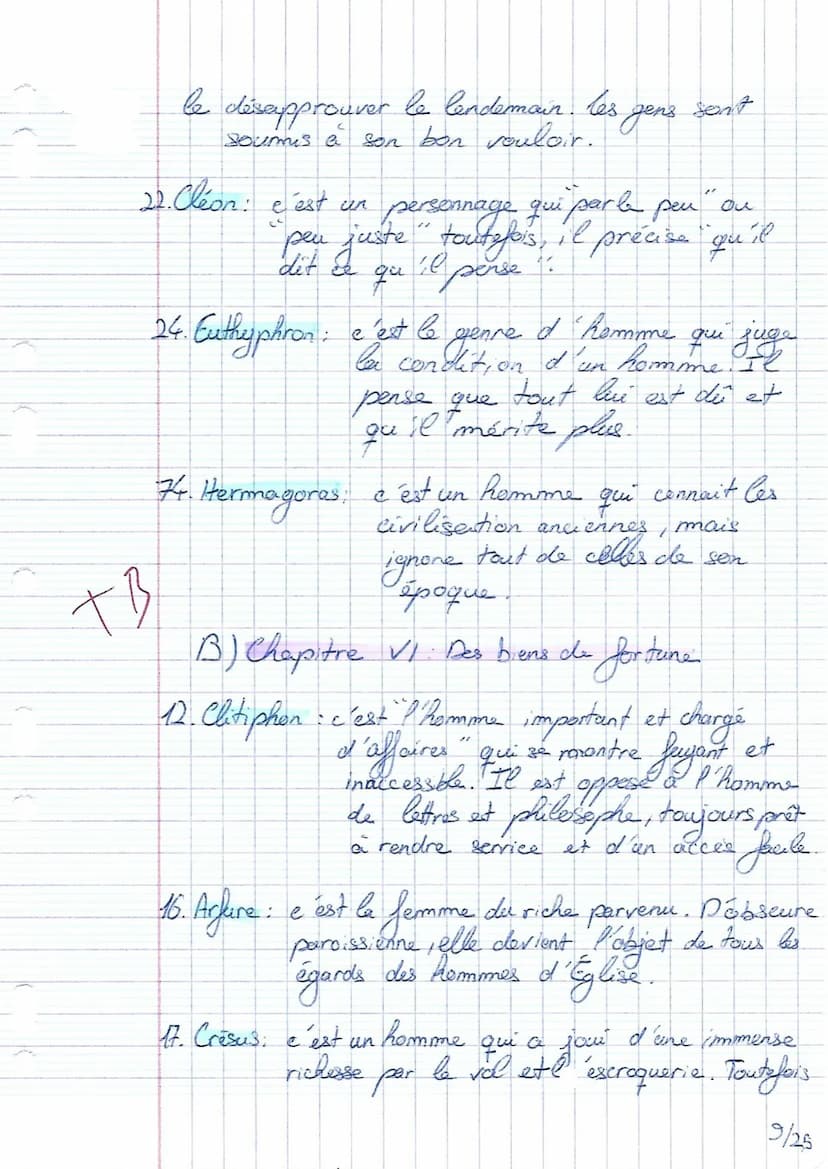 le désapprouver le lendemain. Les gens sont
soumis à son bon vouloir.
22. Cléon : c'est un personnage qui "parle peu" ou
"peu juste" toutefois, il précise "qu'il
dit ce qu'il pense".
24. Euthyphron : c'est le genre d'homme qui juge
la condition d'un homme. Il
pense que tout lui est dû et
qu'il mérite plus.
74. Hermagoras : c'est un homme qui connait les
civilisation anciennes, mais
ignore tout de celles de son
époque.
TB
B) Chapitre VI : Des biens de fortune
12. Clitiphon : c'est "l'homme important et chargé
d'affaires" qui se montre fuyant et
inaccessble. Il est opposé à l'homme
de lettres et philosophe, toujours prêt
à rendre service et d'un accès facile.
16. Arfure : c'est la femme du riche parvenu. D'obscure
paroissienne, elle devient l'objet de tous les
égards des hommes d'Église.
17. Crésus : c'est un homme qui a joui d'une immense
richesse par le vol et l'escroquerie. Toutefois
9/25